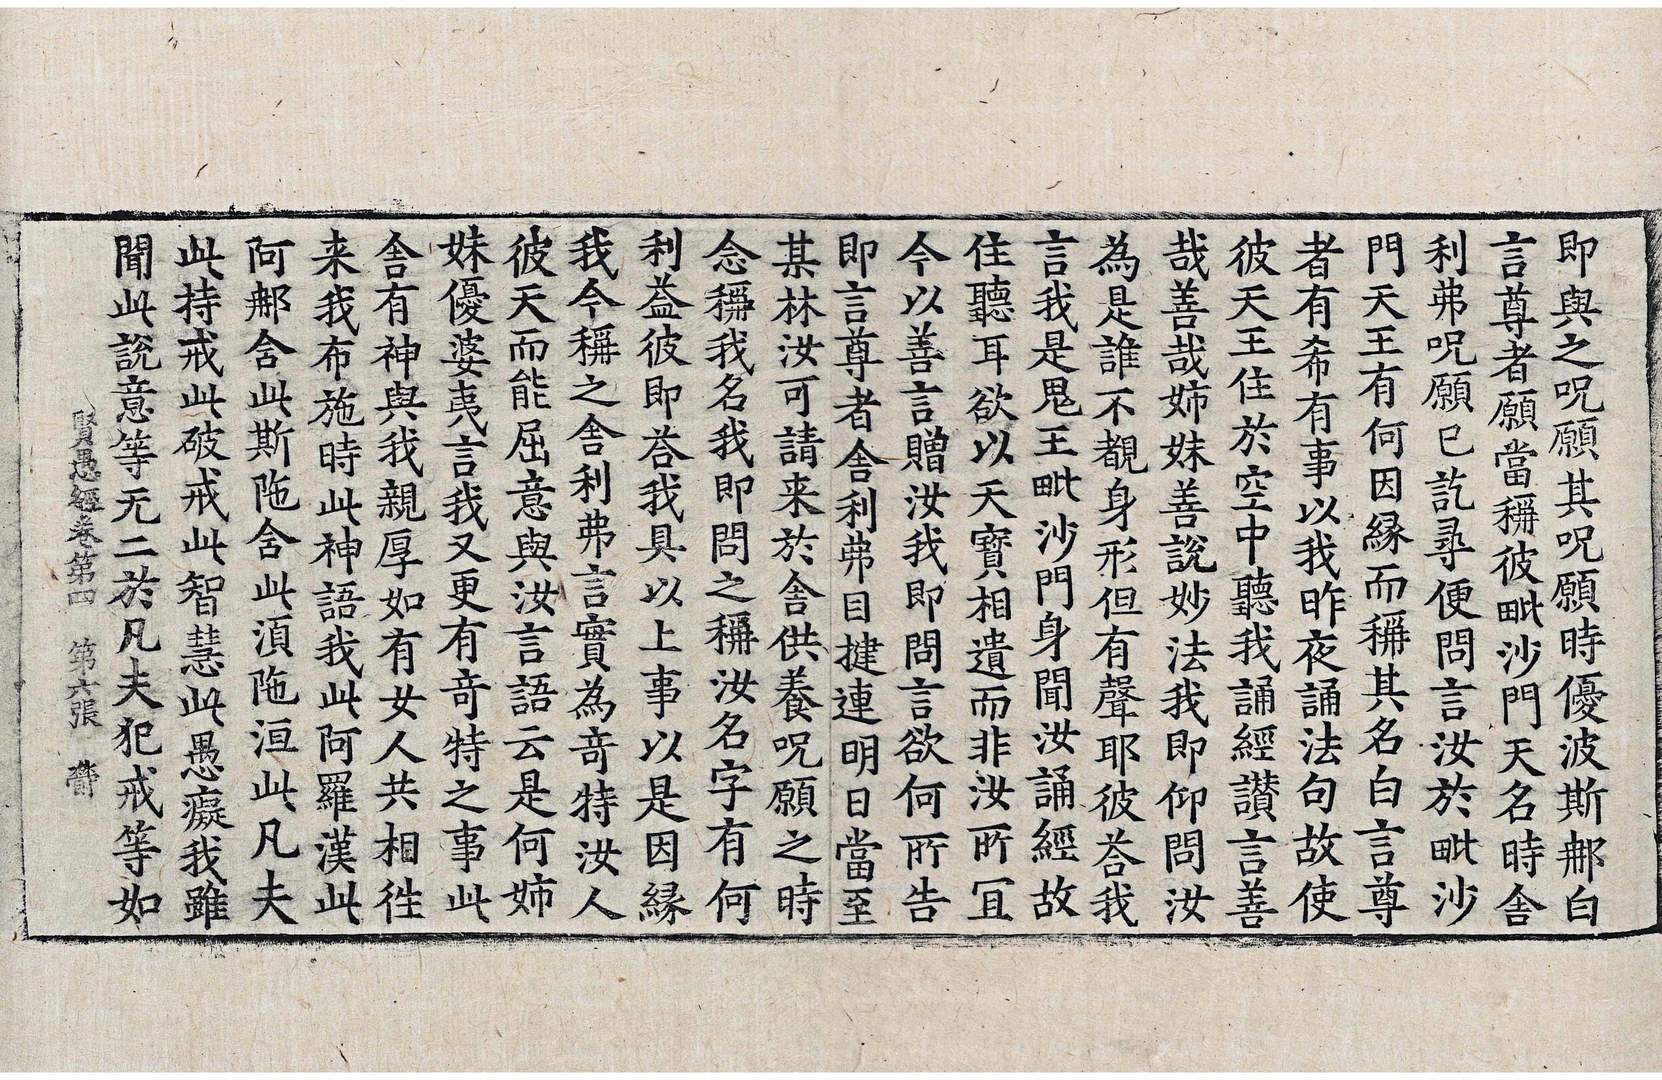 即與之呪願其呪願時優波斯𨚗白
言尊者願當稱彼毗沙門天名時舍
利弗呪願已訖尋便問言汝於毗沙
門天王有何因緣而稱其名白言尊
者有希有事以我昨夜誦法句故使
彼天王住於空中聽我誦經讃言善
哉善哉姉妹善說妙法我即仰問汝
為是誰不覩身形但有聲耶彼荅我
言我是鬼王毗沙門身聞汝誦經故
住聽耳欲以天寳相遺而非汝所冝
今以善言贈汝我即問言欲何所告
即言尊者舍利弗目揵連明日當至
某林汝可請来於舍供養呪願之時
念稱我名我即問之稱汝名字有何
利益彼即荅我具以上事以是因緣
我今稱之舍利弗言實為竒特汝人
彼天而能屈意與汝言語云是何姉
妹優婆夷言我又更有竒特之事此
舍有神與我親厚如有女人共相徃
来我布施時此神語我此阿羅漢此
阿𨚗舍此斯陁舍此湏陁洹此凡夫
此持戒此破戒此智慧此愚癡我雖
聞此說意等无二於凡夫犯戒等如
賢愚經卷第四　第六張